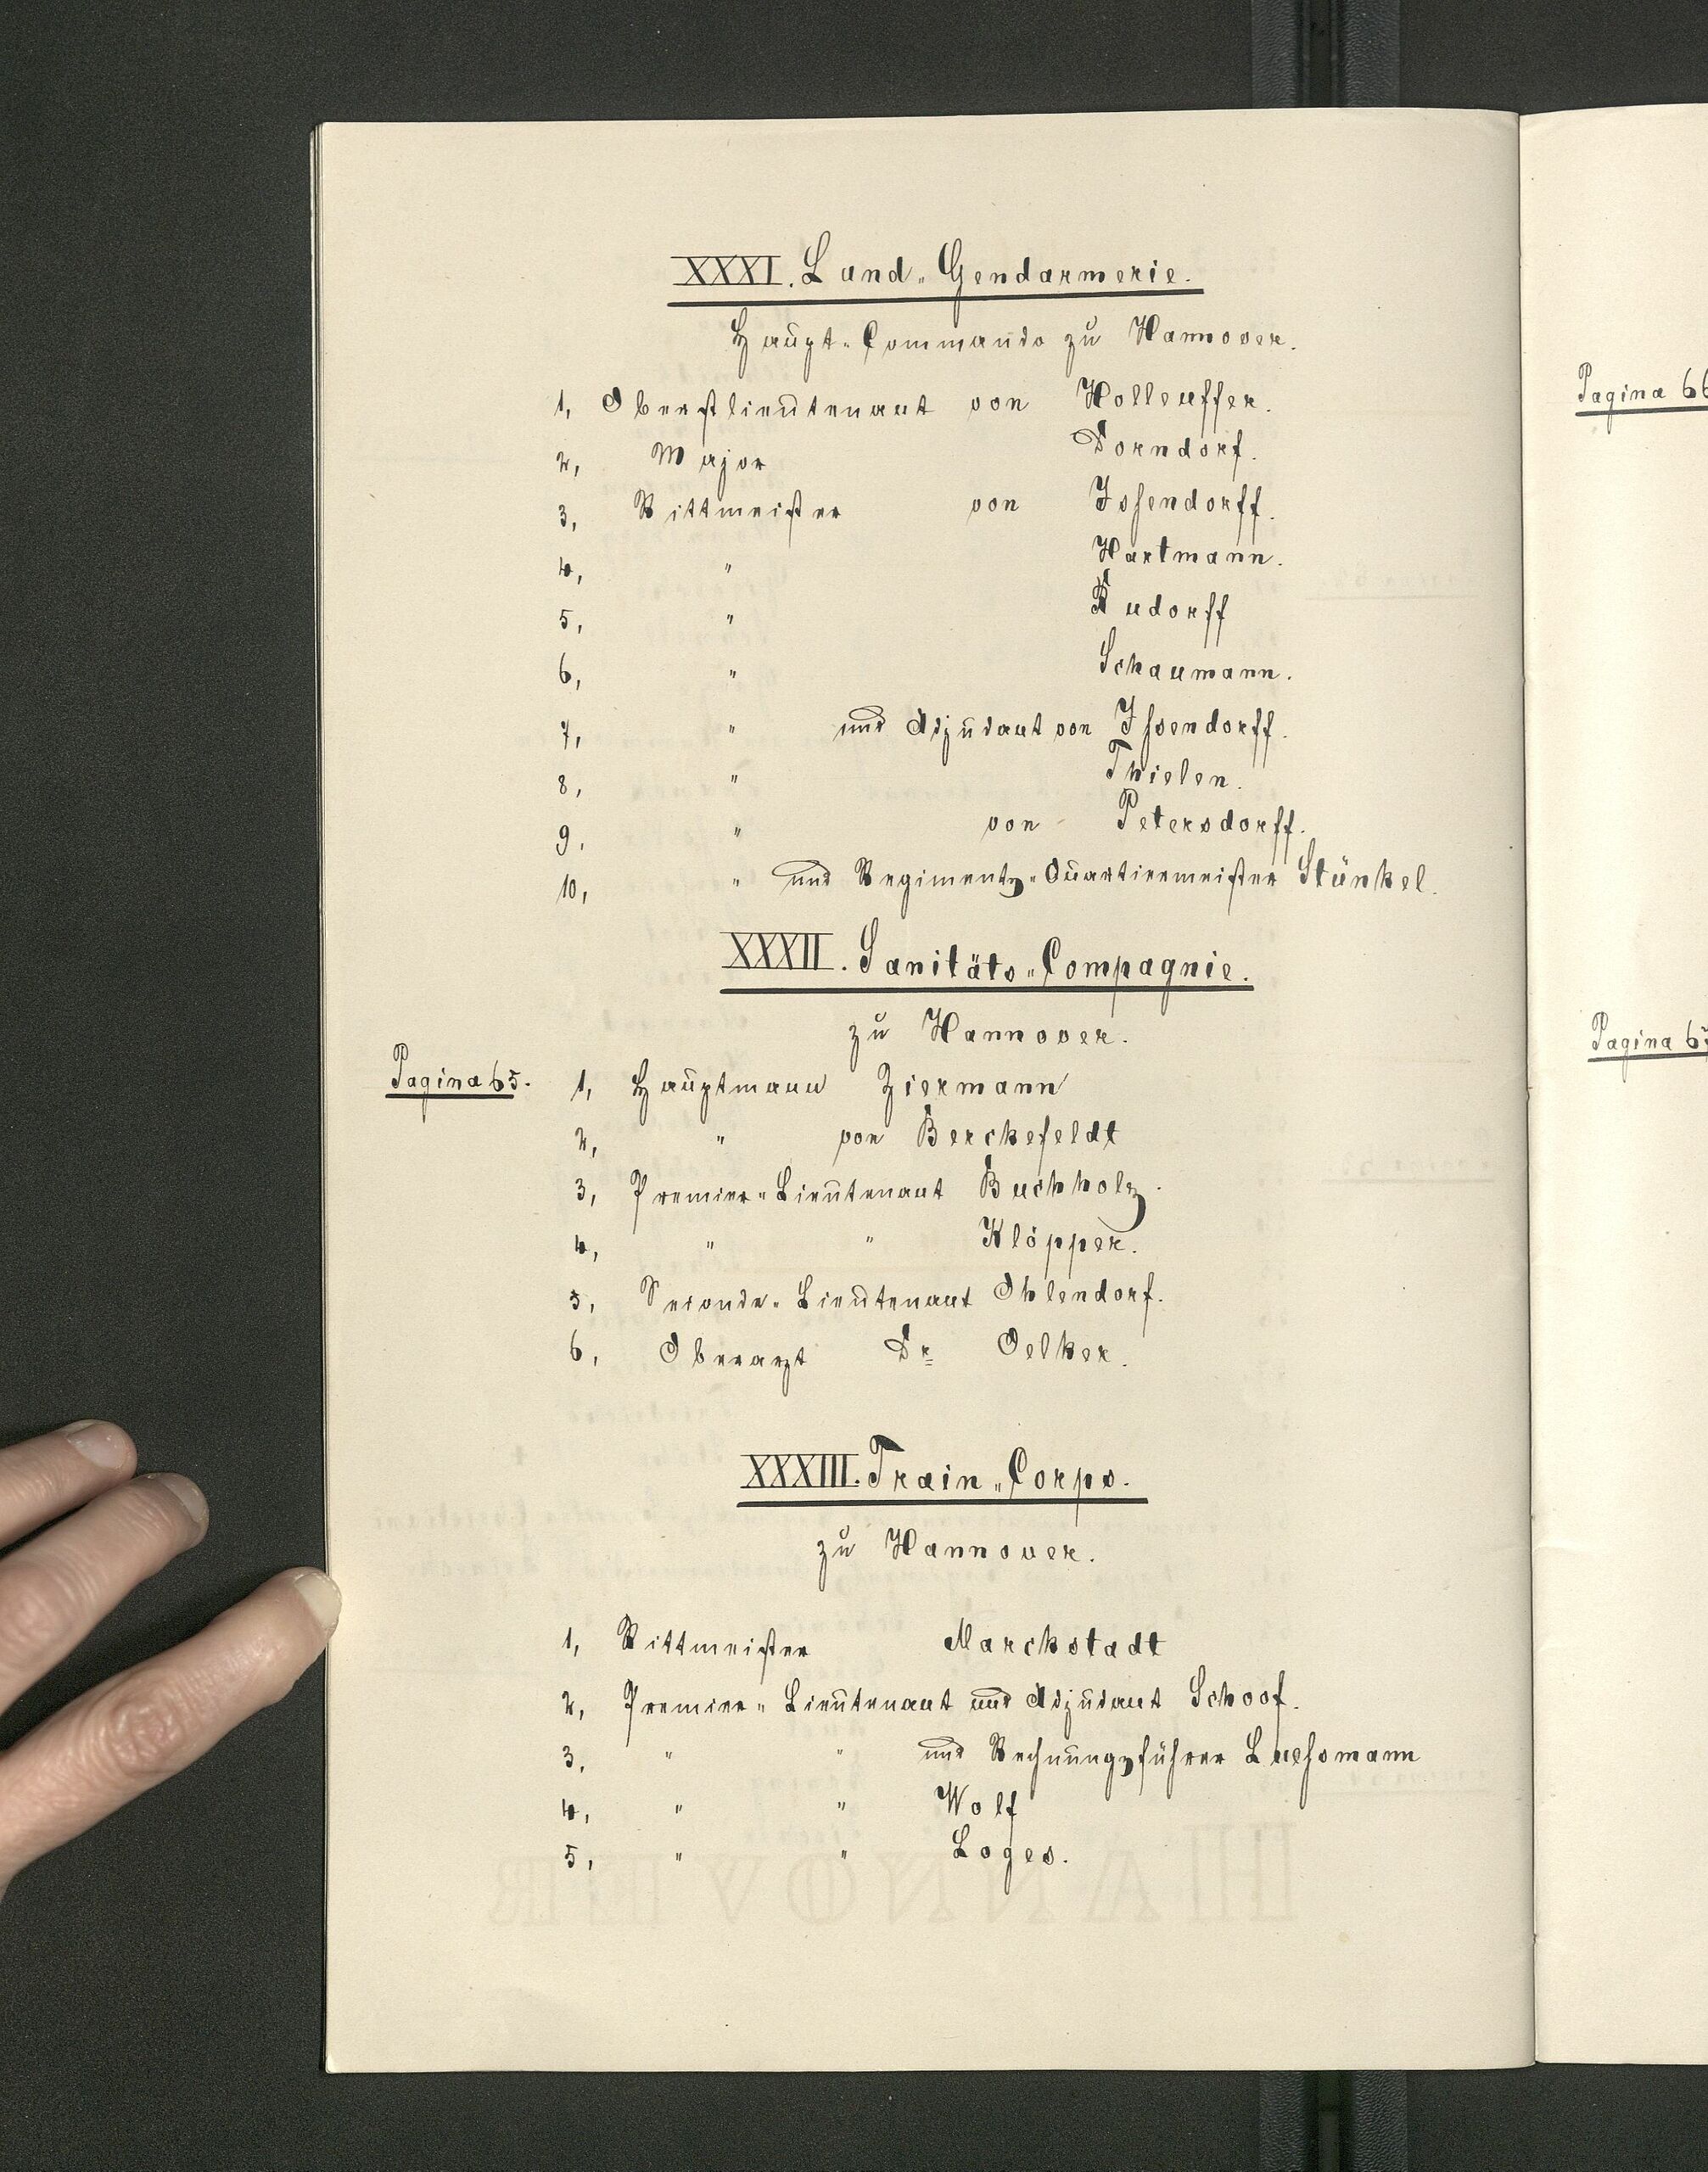 XXXI. Land-Gendarmerie.
Haupt-Commando zu Hannover.
1, Oberstlieutenant von Holleuffer.
2, Major Dorndorf.
3, Rittmeister von Issendorff.
4, " Hartmann.
5, " Rudorff
6, " Schaumann.
7, " und Adjudant von Issendorff.
8, " Thielen.
9, " von Petersdorff.
10, " und Regiments-Quartiermeister Stünkel.
XXXII. Sanitäts-Compagnie.
zu Hannover.
Pagina 65.
1, Hauptmann Ziermann
2, " von Berckefeldt
3, Premier-Lieutenant Buchholz.
4, " " Klöpper.
5, Seconde-Lieutenant Ohlendorf.
6, Oberarzt Dr. Oelker.
XXXIII. Train-Corps.
zu Hannover.
1, Rittmeister Marckstadt
2, Premier-Lieutenant und Adjudant Schoof.
3, " " und Rechnungsführer Luessmann
4, " " Wolf
5, " " Loges.
Pagina 66
Pagina 6